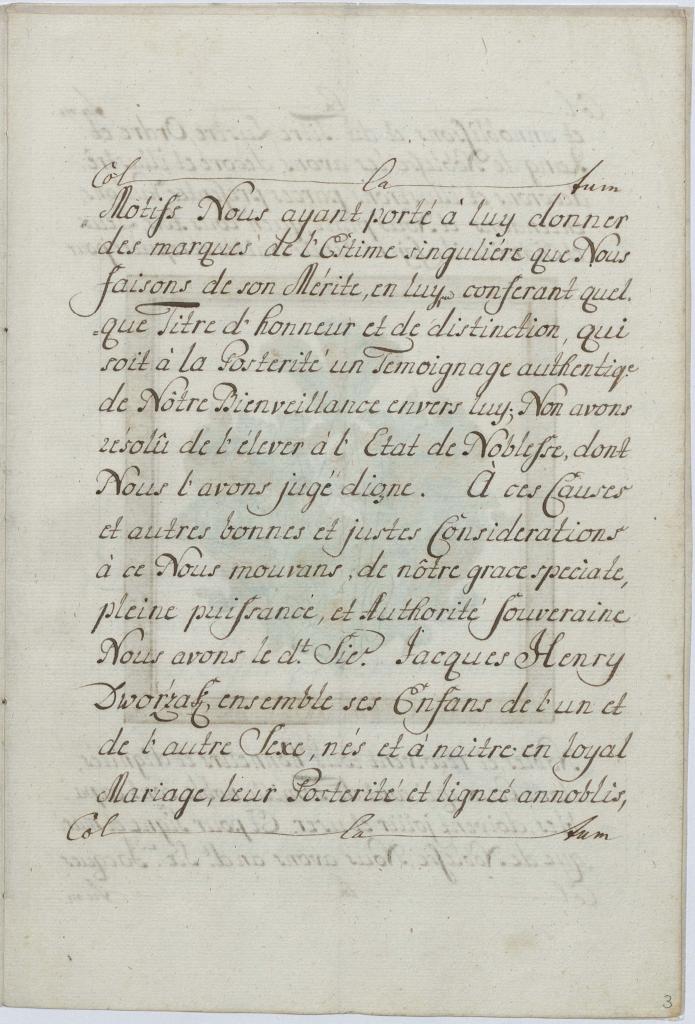 Col la tum
Motifs Nous ayant porté à luy donner
des marques de l'Estime singuliére que Nous
faisons de son Mérite, en luy conferant quel-
que Titre d'honneur et de distinction, qui
soit à la Posterité un Temoignage authentiqe
de Nôtre Bienveillance envers luy; Non avons
résolû de l'élever à l'Etat de Noblesse, dont
Nous l'avons jugé digne. À ces Causes
et autres bonnes et justes Considerations
à ce Nous mouvans, de nôtre grace speciale,
pleine puissance, et Authorité souveraine
Nous avons le d.t Sier. Jacques Henry
Dworzak, ensemble ses Enfans de l'un et
de l'autre Sexe, nés et à naitre en loyal
Mariage, leur Posterité et ligneé annoblis,
Col la tum
3